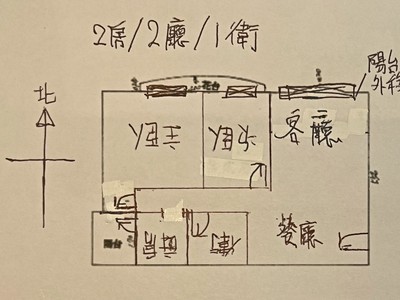 2房/2廳/1衛
陽台
外移
北
花台
主臥
次臥
客廳
餐廳
陽台
廚房
衛